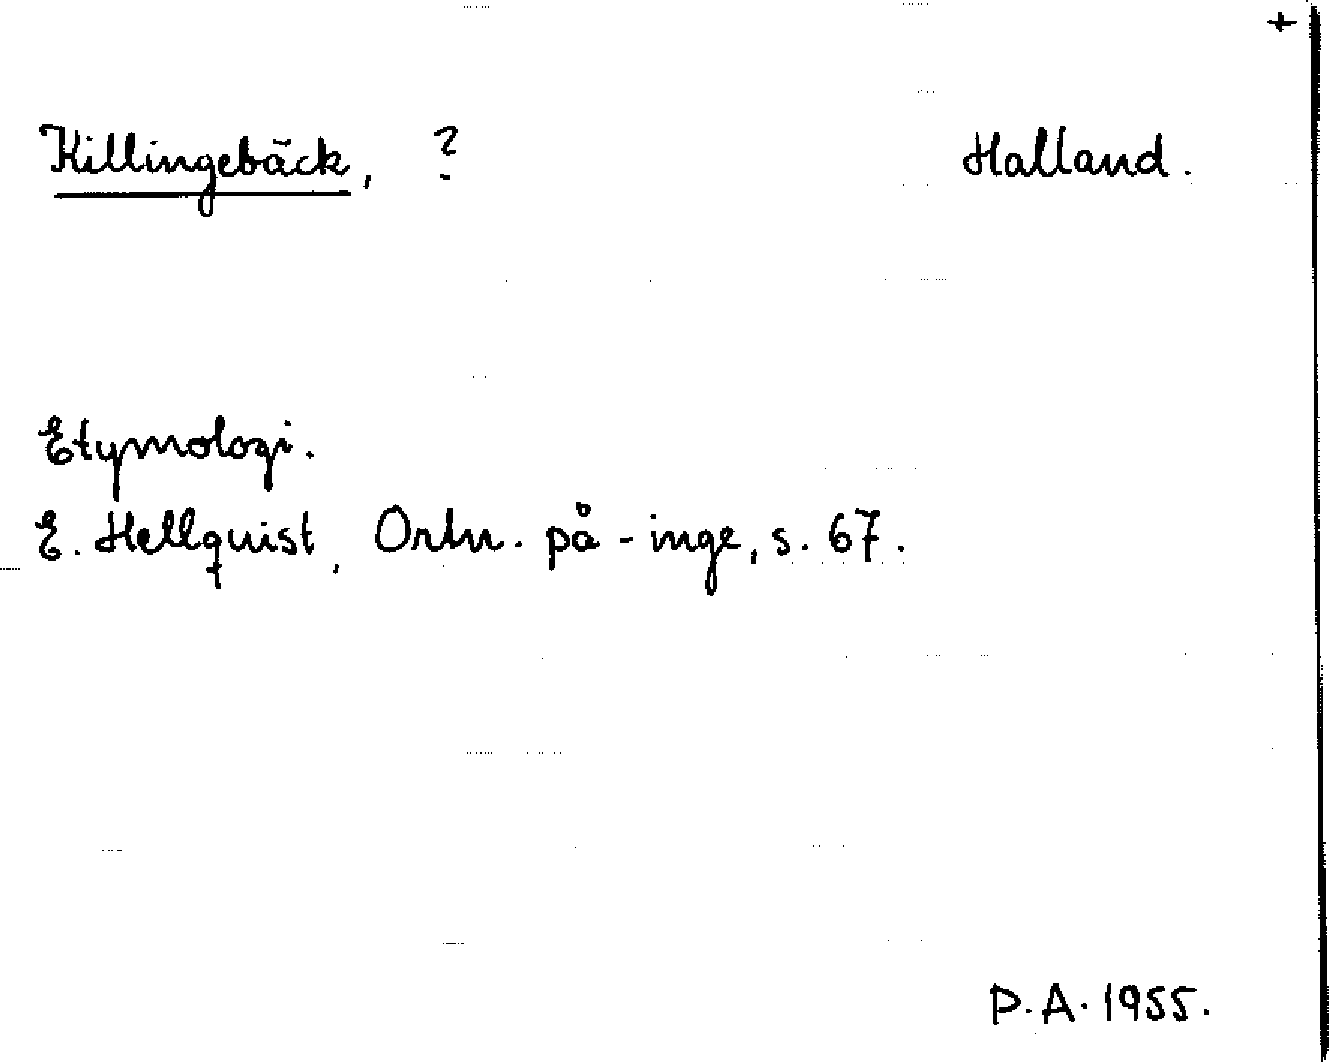 +
Killingebäck, ? Halland.
Etymologi.
E. Hellquist, Ortn. på -inge, s. 67.
P.A. 1955.